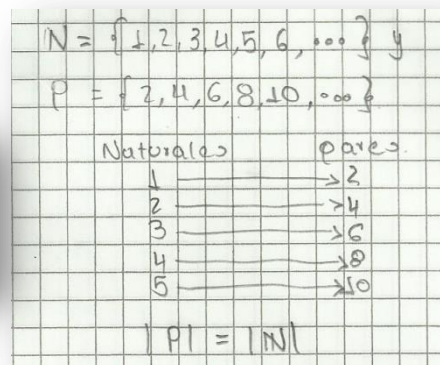 N = {1,2,3,4,5,6,...} y
P = {2,4,6,8,10,...}
Naturales pares
1 → 2
2 → 4
3 → 6
4 → 8
5 → 10
|P| = |N|